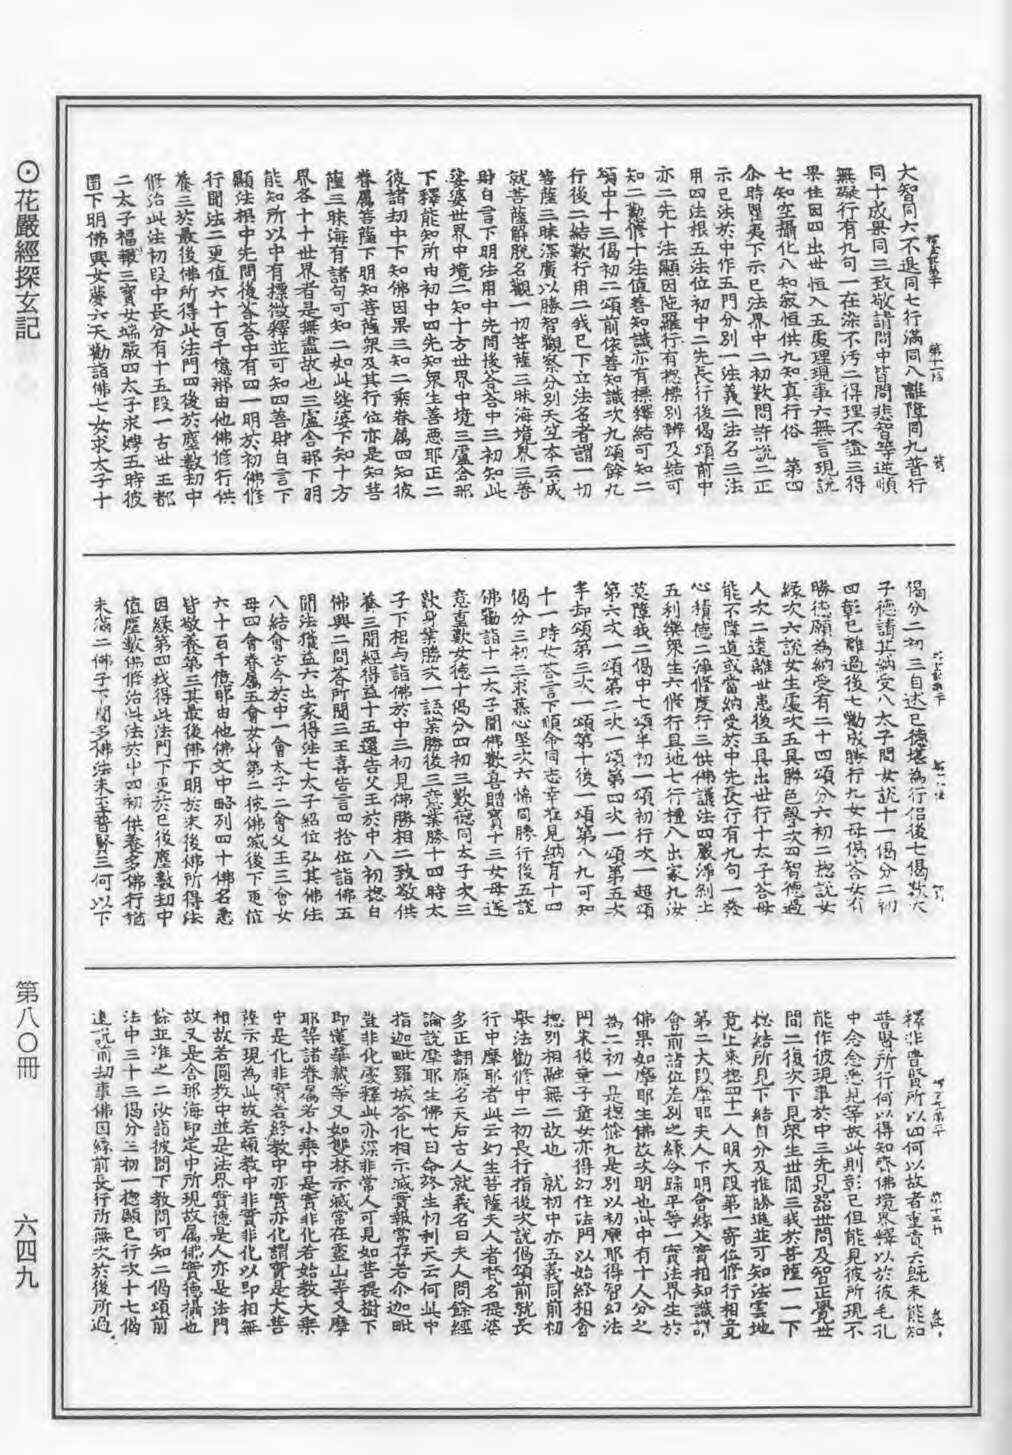 ⊙花嚴經探玄記
第八〇冊
六四九
大智同六不退同七行滿同八離障同九普行
同十成果同三致敬請問中皆問悲智等逆順
無礙行有九句一在染不污二得理不證三得
果住因四出世恒入五處理現事六無言現說
七知空攝化八知寂恒供九知真行俗 第四
命時瞿夷下示已法界中二初歎問許說二正
示已法於中作五門分別一法義二法名三法
用四法根五法位初中二先長行後偈頌前中
亦二先十法顯因陀羅行有標標別辨及結可
知二勸脩十法值善知識亦有標釋結可知二
頌中十三偈初二頌前依善知識次九頌餘九
行後二結歎行用二我已下立法名者謂一切
菩薩三昧深廣以勝智觀察分別天竺本云成
就菩薩解脫名觀一切菩薩三昧海境界三善
財白言下明法用中先問後答答中三初知此
娑婆世界中境二知十方世界中境三盧舍那
下釋能知所由初中四先知眾生善惡耶正二
彼諸劫中下知佛因果三知二乘眷屬四知彼
眷屬菩薩下明知菩薩眾及其行位亦是知菩
薩三昧海有諸句可知二如此娑婆下知十方
界各十十世界者是無盡故也三盧舍那下明
能知所以中有標徵釋並可知四善財白言下
顯法根中先問後答答中有四一明於初佛脩
行聞法二更值六十百千億那由他佛脩行供
養三於最後佛所得此法門四後於塵數劫中
脩治此法初段中長分有十五段一古世王都
二太子福報三寶女端嚴四太子求娉五時彼
園下明佛興女夢六天勸詣佛七女求太子十
偈分二初三自述已德堪為行侶後七偈歎太
子德請其納受八太子問女說十一偈分二初
四彰已離過後七勸成勝行九女母偈答女有
勝德願為納受有二十四頌分六初二惣說女
緣次六說女生處次五具勝色聲次四智德過
人次二遠離世患後五具出世行十太子答母
能不障道或當納受於中先長行有九句一發
心積德二淨脩度行三供佛護法四嚴淨剎土
五利樂眾生六脩行具地七行種八出家九汝
莫障我二偈中七頌半初一頌初行次一超頌
第六次一頌第二次一頌第四次一頌第五次
半却頌第三次一頌第十後一頌第八九可知
十一時女答言下順命同志幸在見納有十四
偈分三初三求慕心堅次六悕同勝行後五說
佛勸詣十二太子聞佛歡喜賜寶十三女母遂
意重歎女德十偈分四初三歎德同太子次三
歎身業勝次一語業勝後三意業勝十四時太
子下相与詣佛於中三初見佛勝相二致敬供
養三聞經得益十五還告父王於中八初惣白
佛興二問答所聞三王喜告言四捨位詣佛五
聞法獲益六出家得法七太子紹位弘其佛法
八結會古今於中一會太子二會父王三會女
母四會眷屬五會女身第二彼佛滅後下更值
六十百千億那由他佛文中略列四十佛名悉
皆敬養第三其最後佛下明於末後佛所得法
因緣第四我得此法門下更於已後塵數劫中
值塵數佛脩治此法於中四初供養多佛行猶
未滿二佛子下聞多佛法未至普賢三何以下
釋非普賢所以四何以故者重責六既未能知
普賢所行何以得知齊佛境界釋以於彼毛孔
中念念悉見等故此則彰已但能見彼所現不
能作彼現事於中三先見器世間及智正覺世
間二復次下見眾生世間三我於菩薩一一下
惣結所見下結自分及推勝進並可知法雲地
竟上來惣四十一人明大段第一寄位修行相竟
第二大段摩耶夫人下明會緣入實相知識謂
會前諸位差別之緣令歸平等一實法界生於
佛果如摩耶生佛故次明也此中有十人分之
為二初一是惣餘九是別以初摩耶得智幻法
門末後童子童女亦得幻住法門以始終相會
惣別相融無二故也 就初中亦五義同前初
舉法勸修中二初長行指後次說偈頌前就長
行中摩耶者此云幻生菩薩夫人者梵名提婆
多正翻應名天后古人就義名曰夫人問餘經
論說摩耶生佛七日命終生忉利天云何此中
指迦毗羅城答化相示滅實報常存若介迦毗
豈非化處釋此亦深非常人可見如菩提樹下
即蓮華藏等又如雙林示滅常在靈山等又摩
耶等諸眷屬若小乘中是實非化若始教大乘
中是化非實若終教中亦實亦化謂實是大菩
薩示現為此故若頓教中非實非化以即相無
相故若圓教中並是法界實德是人亦是法門
故又是舍那海印定中所現故屬佛實德攝也
餘並准之二汝詣彼問下教問可知二偈頌前
法中三十三偈分三初一惣顯已行次十七偈
追說前劫事佛因緣前長行所無次於後所過